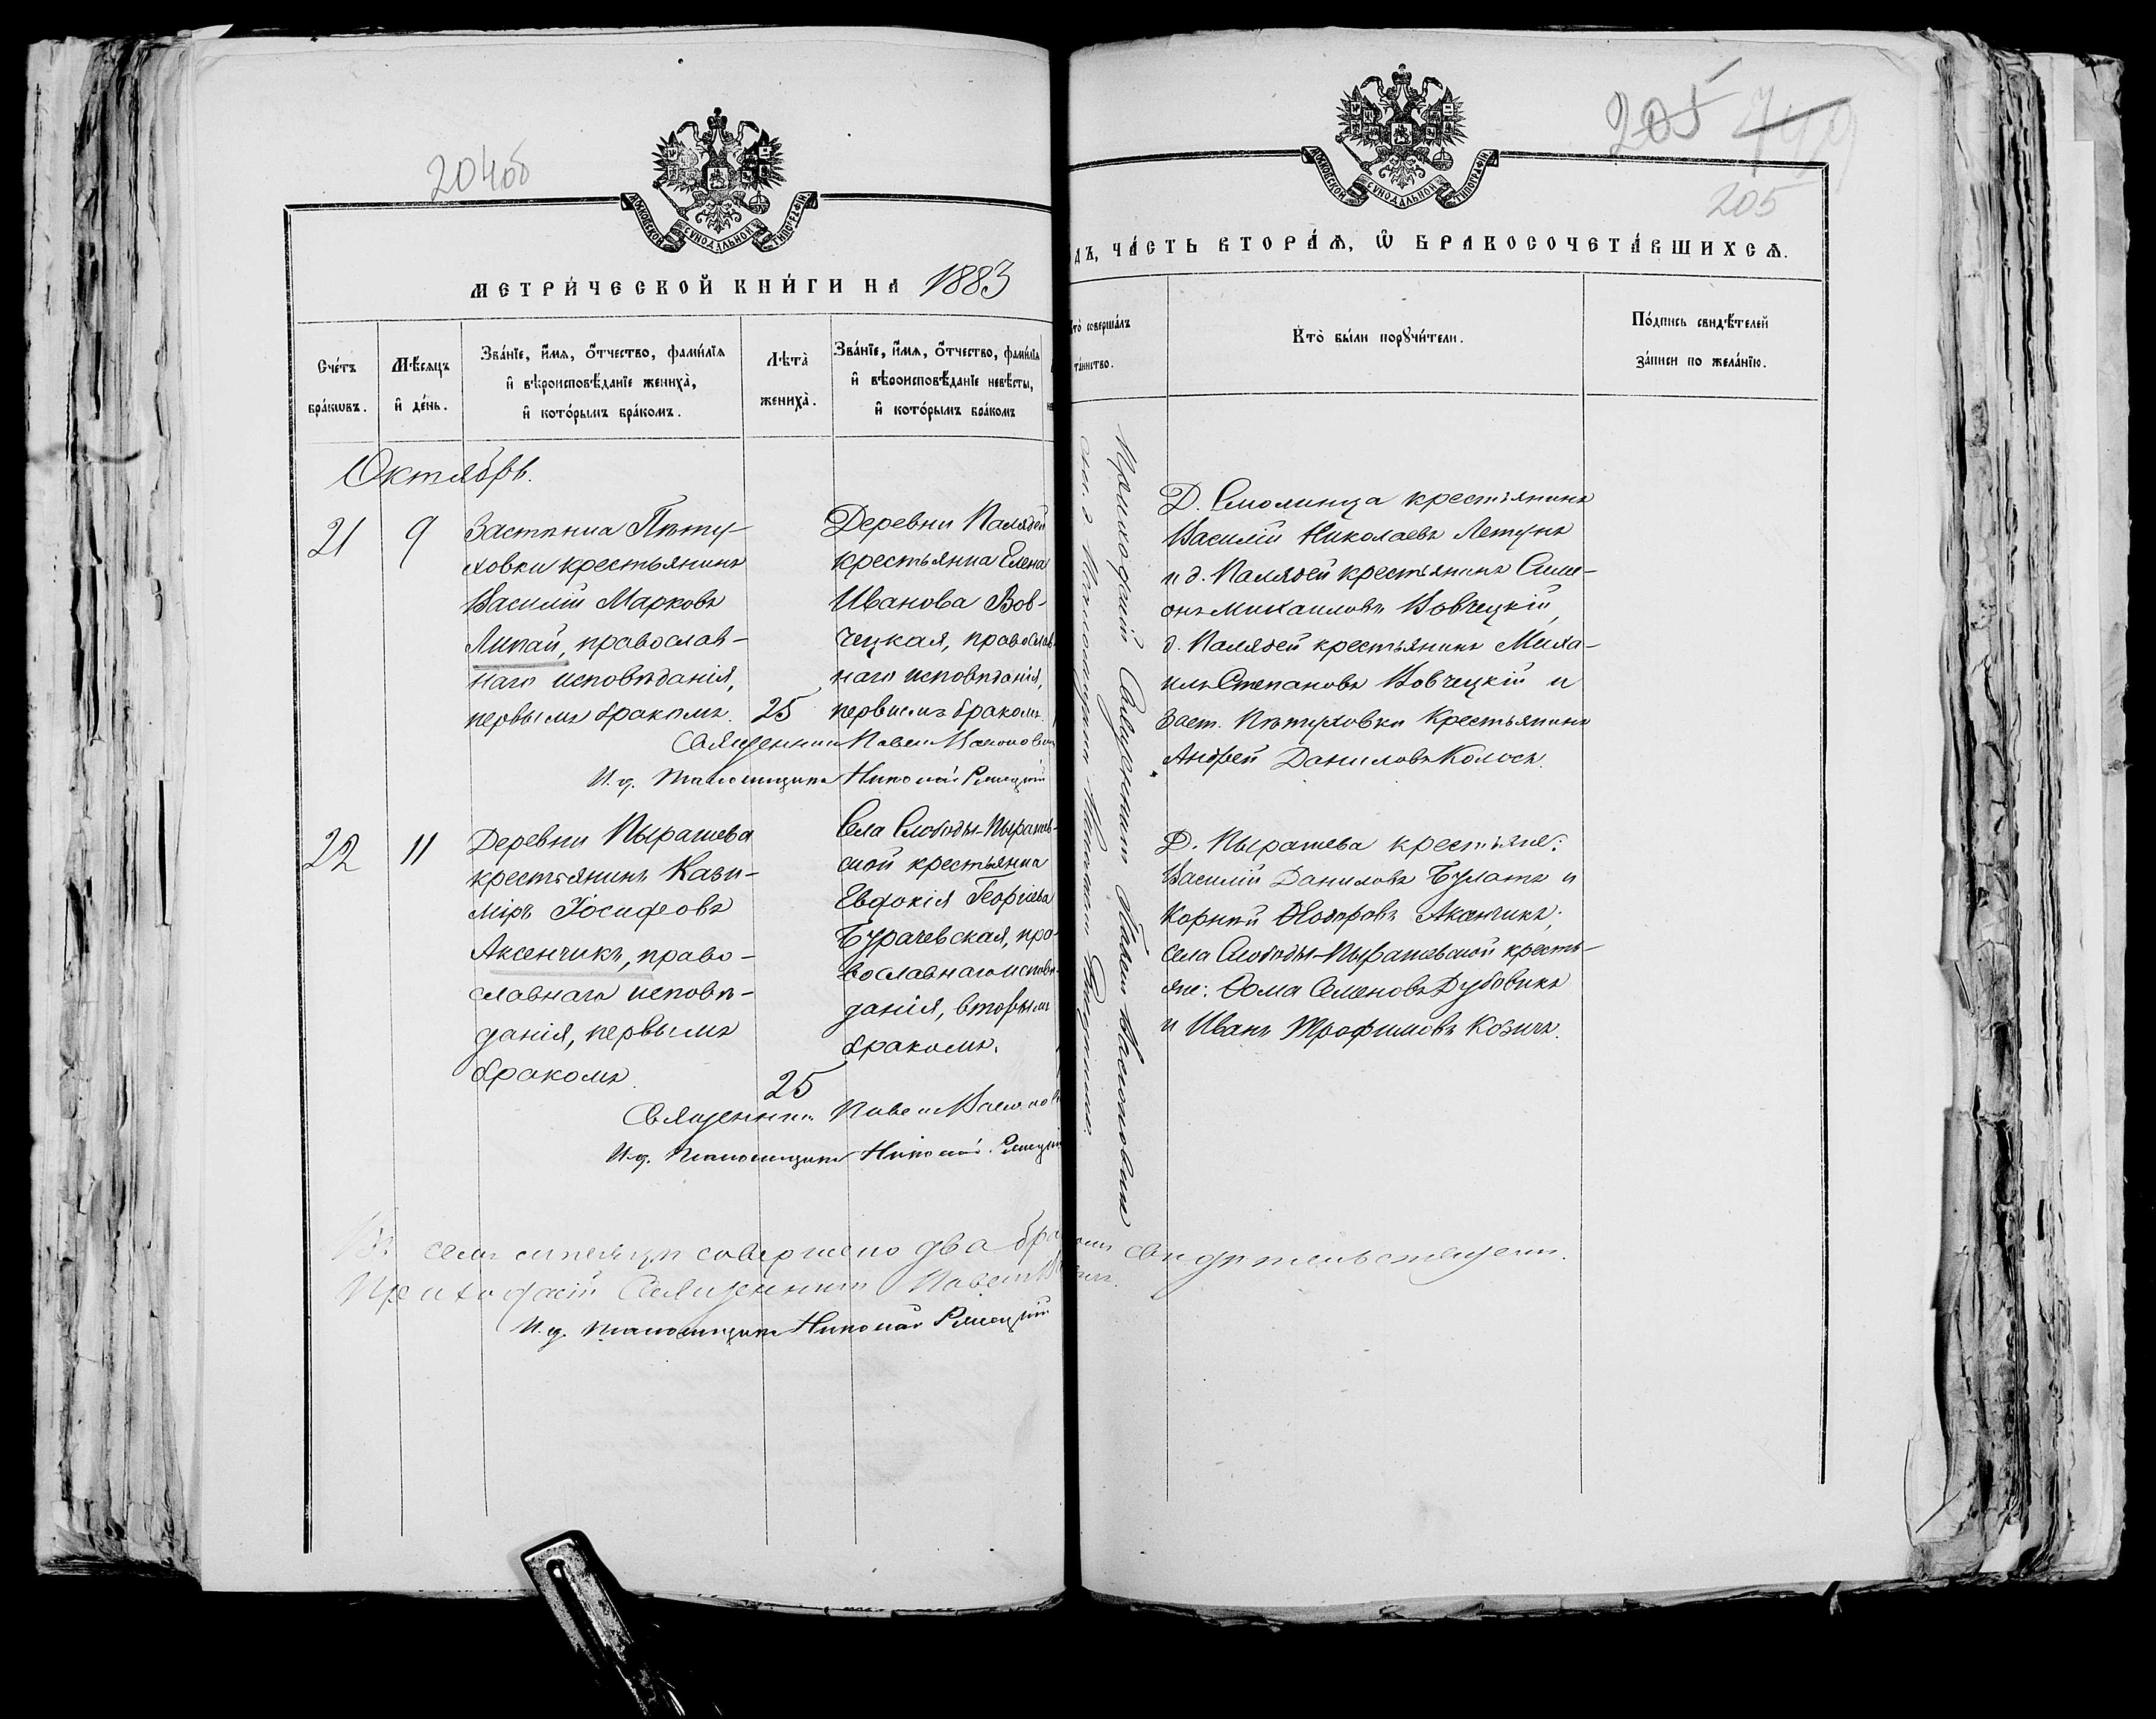 204об
МОСКОВСКОЙ СѴНОДАЛЬНОЙ ТИПОГРАФІИ
МЕТРИ́ЧЕСКОЙ КНИ́ГИ НА 1883
Сче́тъ бра́кѡвъ.
Мѣ́сяцъ и҆ де́нь.
Зва́нїе, и҆́мѧ, ѻ҆́тчество, фами́лїѧ
и҆ вѣроисповѣ́данїе жениха̀,
и҆ кото́рымъ бра́комъ.
Лѣта̀ жениха̀.
Зва́нїе, и҆́мѧ, ѻ҆́тчество, фами́лїѧ
и҆ вѣроисповѣ́данїе невѣ́сты,
и҆ кото́рымъ бра́комъ
Октябрь.
21
9
Застѣнка Пѣту-
ховки крестьянинъ
Василій Марковъ
Липай, православ-
наго исповѣданія,
первымъ бракомъ.
25
Деревни Палядей
крестьянка Елена
Иванова Вов-
чецкая, православ-
наго исповѣданія,
первымъ бракомъ.
Священникъ Павелъ
И. д. псаломщика Николай
22
11
Деревни Пырашева
крестьянинъ Кази-
міръ Іосифовъ
Аксенчикъ, право-
славнаго исповѣ-
данія, первымъ
бракомъ.
25
Села Слободы-Пырашев-
ской крестьянка
Евдокія Георгіева
Бурачевская, пра-
вославнаго исповѣ-
данія, вторымъ
бракомъ.
Священникъ Павелъ
И. д. псаломщика Николай
Въ семъ мѣсяцѣ совершено два брака
Приходскій Священникъ Павелъ
И. д. псаломщика Николай
205
205
МОСКОВСКОЙ СѴНОДАЛЬНОЙ ТИПОГРАФІИ
ДЪ, ЧА́СТЬ ВТОРА́Ѧ, Ѽ БРАКОСОЧЕТА́ВШИХСѦ.
кто̀ соверша́лъ
та́инство.
Кто̀ бы́ли порꙋчи́тели.
По́дпись свидѣ́телей
за́писи по жела́нїю.
Приходскій Священникъ Павелъ
Д. Смолинца крестьянинъ
Василій Николаевъ Летунъ
и д. Палядей крестьянинъ Симе-
онъ Михаиловъ Вовчецкій,
д. Палядей крестьянинъ Миха-
илъ Степановъ Вовчецкій и
Заст. Пѣтуховки Крестьянинъ
Андрей Даниловъ Колосъ.
Д. Пырашева крестьяне:
Василій Даниловъ Булатъ и
Корнѣй Ѳодоровъ Аксенчикъ;
Села Слободы-Пырашевской кресть-
яне: Ѳома Семеновъ Дубовикъ
и Иванъ Трофимовъ Козичъ.
свидѣтельствуемъ.